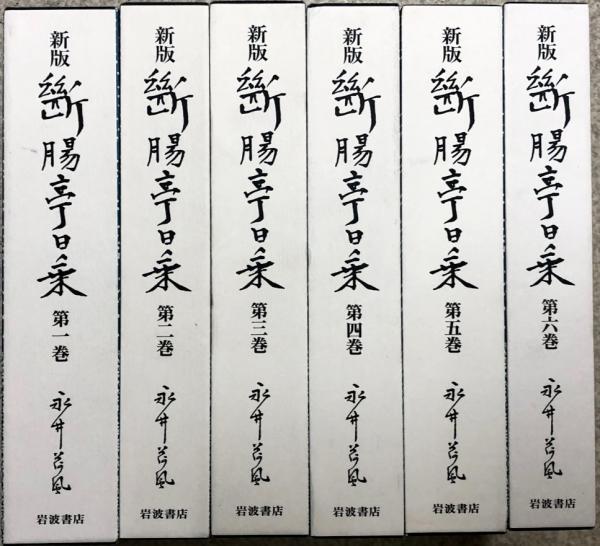 新版
斷腸亭日乗
第一巻
永井荷風
岩波書店
新版
斷腸亭日乗
第二巻
永井荷風
岩波書店
新版
斷腸亭日乗
第三巻
永井荷風
岩波書店
新版
斷腸亭日乗
第四巻
永井荷風
岩波書店
新版
斷腸亭日乗
第五巻
永井荷風
岩波書店
新版
斷腸亭日乗
第六巻
永井荷風
岩波書店